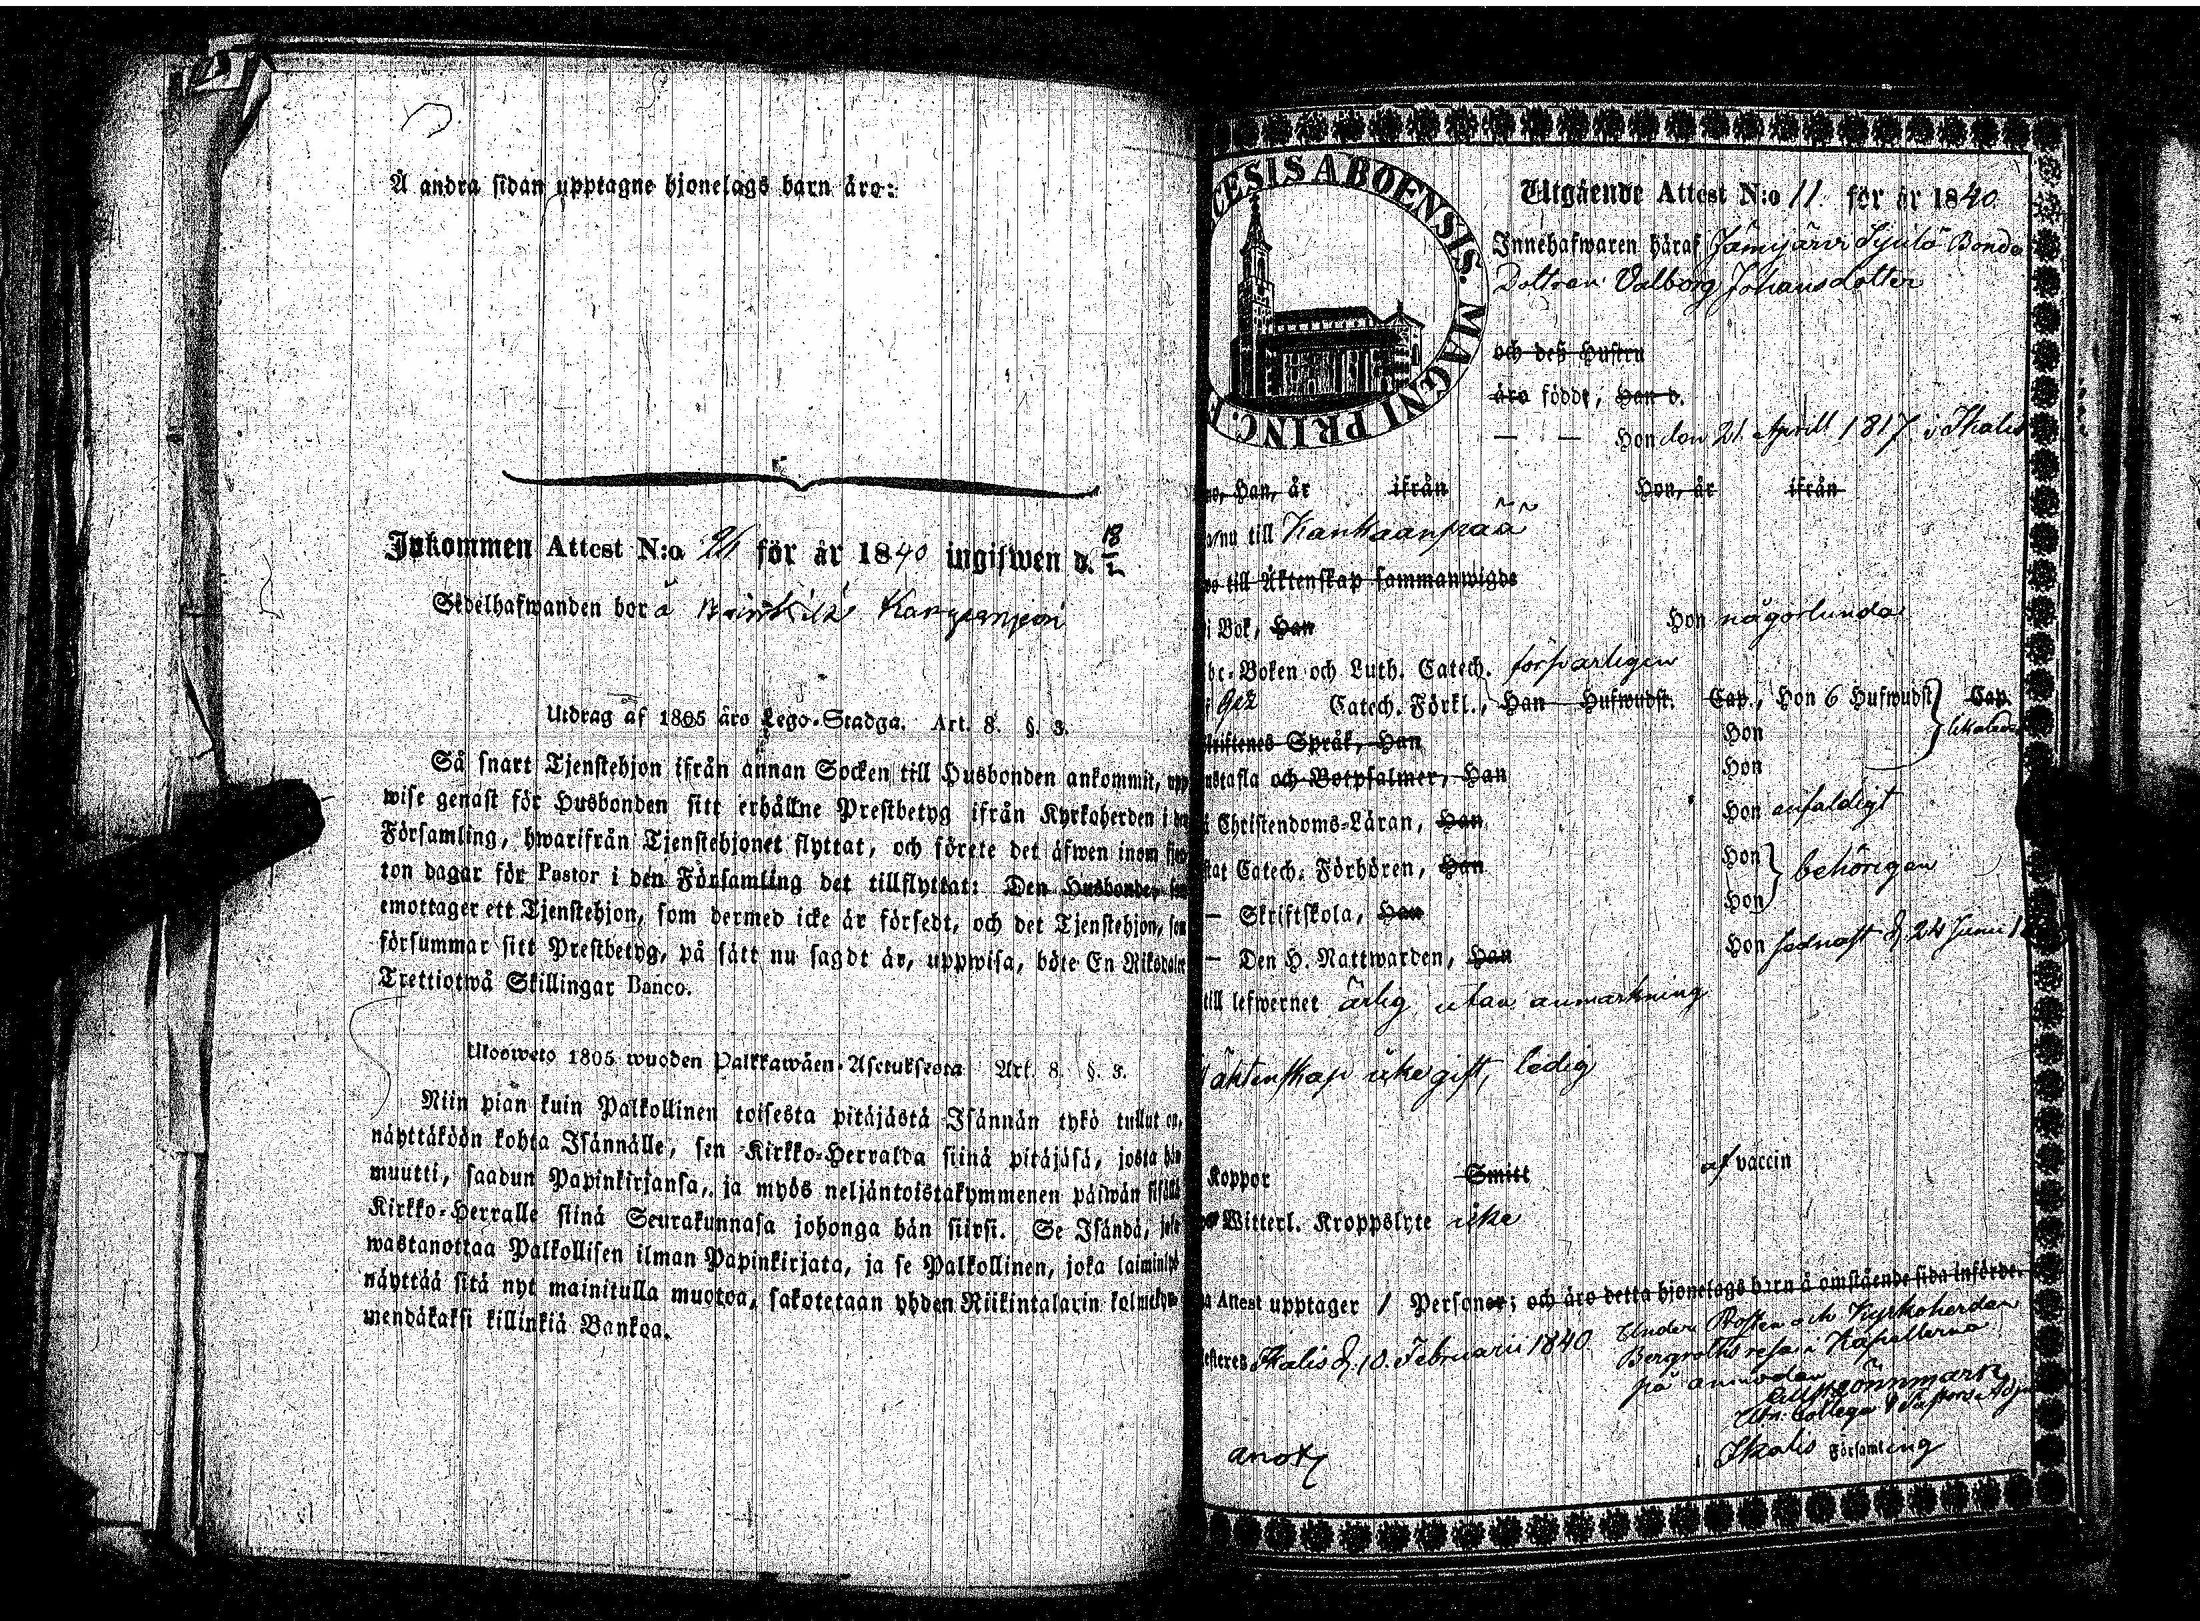 Å andra sidan upptagne hjonelags barn äro:
Inkommen Attest N:o 26 för år 1840 ingifwen d. 18/2
Sedelhafwanden bor å
Utdrag af 1805 års Lego-Stadga. Art. 8. §. 3.
Så snart Tjenstehjon ifrån annan Socken till Husbonden ankommit, upp
wise genast för Husbonden sitt erhållne Prestbetyg ifrån Kyrkoherden i den
Församling, hwarifrån Tjenstehjonet flyttat, och förete det äfwen inom fjor
ton dagar för Pastor i den Församling det tillflyttat: Den Husbonde, som
emottager ett Tjenstehjon, som dermed icke är försedt, och det Tjenstehjon, som
försummar sitt Prestbetyg, på sätt nu sagdt är, uppwisa, böte En Riksdaler
Trettiotwå Skillingar Banco.
Ulosweto 1805 wuoden Palkkawäen-Asetuksesta Art. 8. §. 3.
Niin pian kuin Palkollinen toisesta pitäjästä Isännän tykö tullut on,
näyttäköön kohta Isännälle, sen Kirkko-Herralda siinä pitäjäsä, josta hän
muutti, saadun Papinkirjansa, ja myös neljäntoistakymmenen päiwän sisällä
Kirkko-Herralle siinä Seurakunnasa johonga hän siirsi. Se Isändä, joka
wastanottaa Palkollisen ilman Papinkirjata, ja se Palkollinen, joka laiminlyö
näyttää sitä nyt mainitulla muotoa, sakotetaan yhden Riikintalarin kolmekym-
mendäkaksi killinkiä Bankoa.
CESIS ABOENSIS. MAGNI PRINC. F
Utgående Attest N:o 11. för år 1840
Innehafwaren häraf Jämijärvi Bonde
Dottren Valborg Johansdotter
och deß Hustru
äro födde, Han d.
— — Hon den 21 Aprill 1817 i Ikalis
Han, år ifrån Hon, år ifrån
nu till Kankaanpää
till Äktenskap sammanwigde
i Bok, Han Hon någorlunda
bc-Boken och Luth. Catech. försvarligen
Catech. Förkl., Han Hufwudst. Cap., Hon 6 Hufwudst Cap.
Skriftenes Språk, Han Hon
ustafla och Botpsalmer, Han Hon
i Christendoms-Läran, Han Hon enfaldigt
tat Catech. Förhören, Han Hon
— Skriftskola, Han Hon behörigen
— Den H. Nattwarden, Han Hon sednast d. 24 Junii
till lefwernet ärlig utan anmärkning
äktenskap icke gift, ledig
Koppor Smitt af vaccin
Witterl. Kroppslyte icke
a Attest upptager 1 Personer; och äro detta hjonelags barn å omstående sida införde.
testeres Ikalis d. 10. Februarii 1840. Under Prosten och Kyrkoherden
Bergroths resa i Kapellerna
på anmodan
i Ikalis Församling